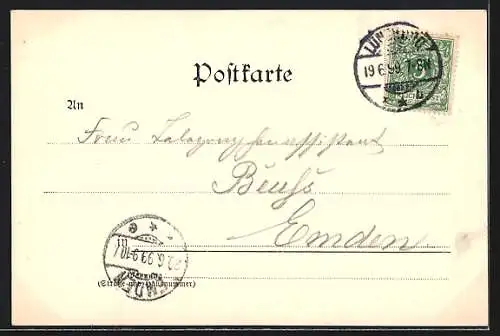 LÜNEBURG
19.6.99.7-8N
Postkarte
An
Frau Telegraphenassistent
Emden
EMDEN
.6.99.9-10
(Straße und Hausnummer)